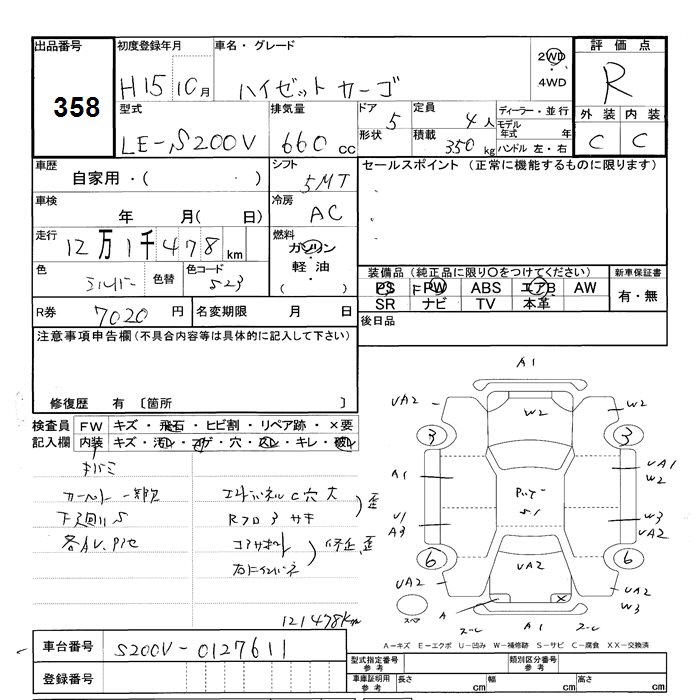 出品番号 初度登録年月 車名・グレード 評価点
358 H15 10月 ハイゼットカーゴ 2WD・4WD R
型式 排気量 ドア 5 定員 4人 ディーラー・並行 外装 内装
LE-S200V 660cc 形状 積載 350kg モデル年式 年 ハンドル 左・右 C C
車歴 シフト セールスポイント (正常に機能するものに限ります)
自家用・( ・ ) 5MT
車検 冷房
年 月( 日) AC
走行 12万1千478km 燃料 ガソリン・軽油・( )
色 シルバー 色替 色コード S23 装備品 (純正品に限り○をつけてください) 新車保証書
PS PW ABS エアB AW 有・無
SR ナビ TV 本革
R券 7020円 名変期限 月 日 後日品
注意事項申告欄(不具合内容等は具体的に記入して下さい)
修復歴 有 〔箇所 〕
検査員 FW キズ・飛石・ヒビ割・リペア跡・×要
記入欄 内装 キズ・汚レ・コゲ・穴・スレ・キレ・破レ
下廻りS
各AU.PTC
エンドパネルC穴大
歪
Rフロアサキ
コアサポート 修正、歪
右にインパネ
121478km
A1
UA2 W2 W2
3 3
A1 UA1 W2
ルーフ S1
U1 A3 W3 UA2
6 6
UA2 UA2 UA2 W3
スペア A × スーレ A1 スーレ
A-キズ E-エクボ U-凹み W-補修跡 S-サビ C-腐食 XX-交換済
車台番号 S200V-0127611
登録番号
型式指定番号 参考 類別区分番号 参考
車庫証明用 参考 長さ cm 幅 cm 高さ cm